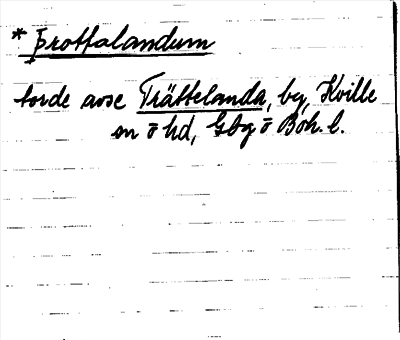 * Þrottalandum
torde avse Trättelanda, by, Kville
sn o hd, Gbg o Boh. l.